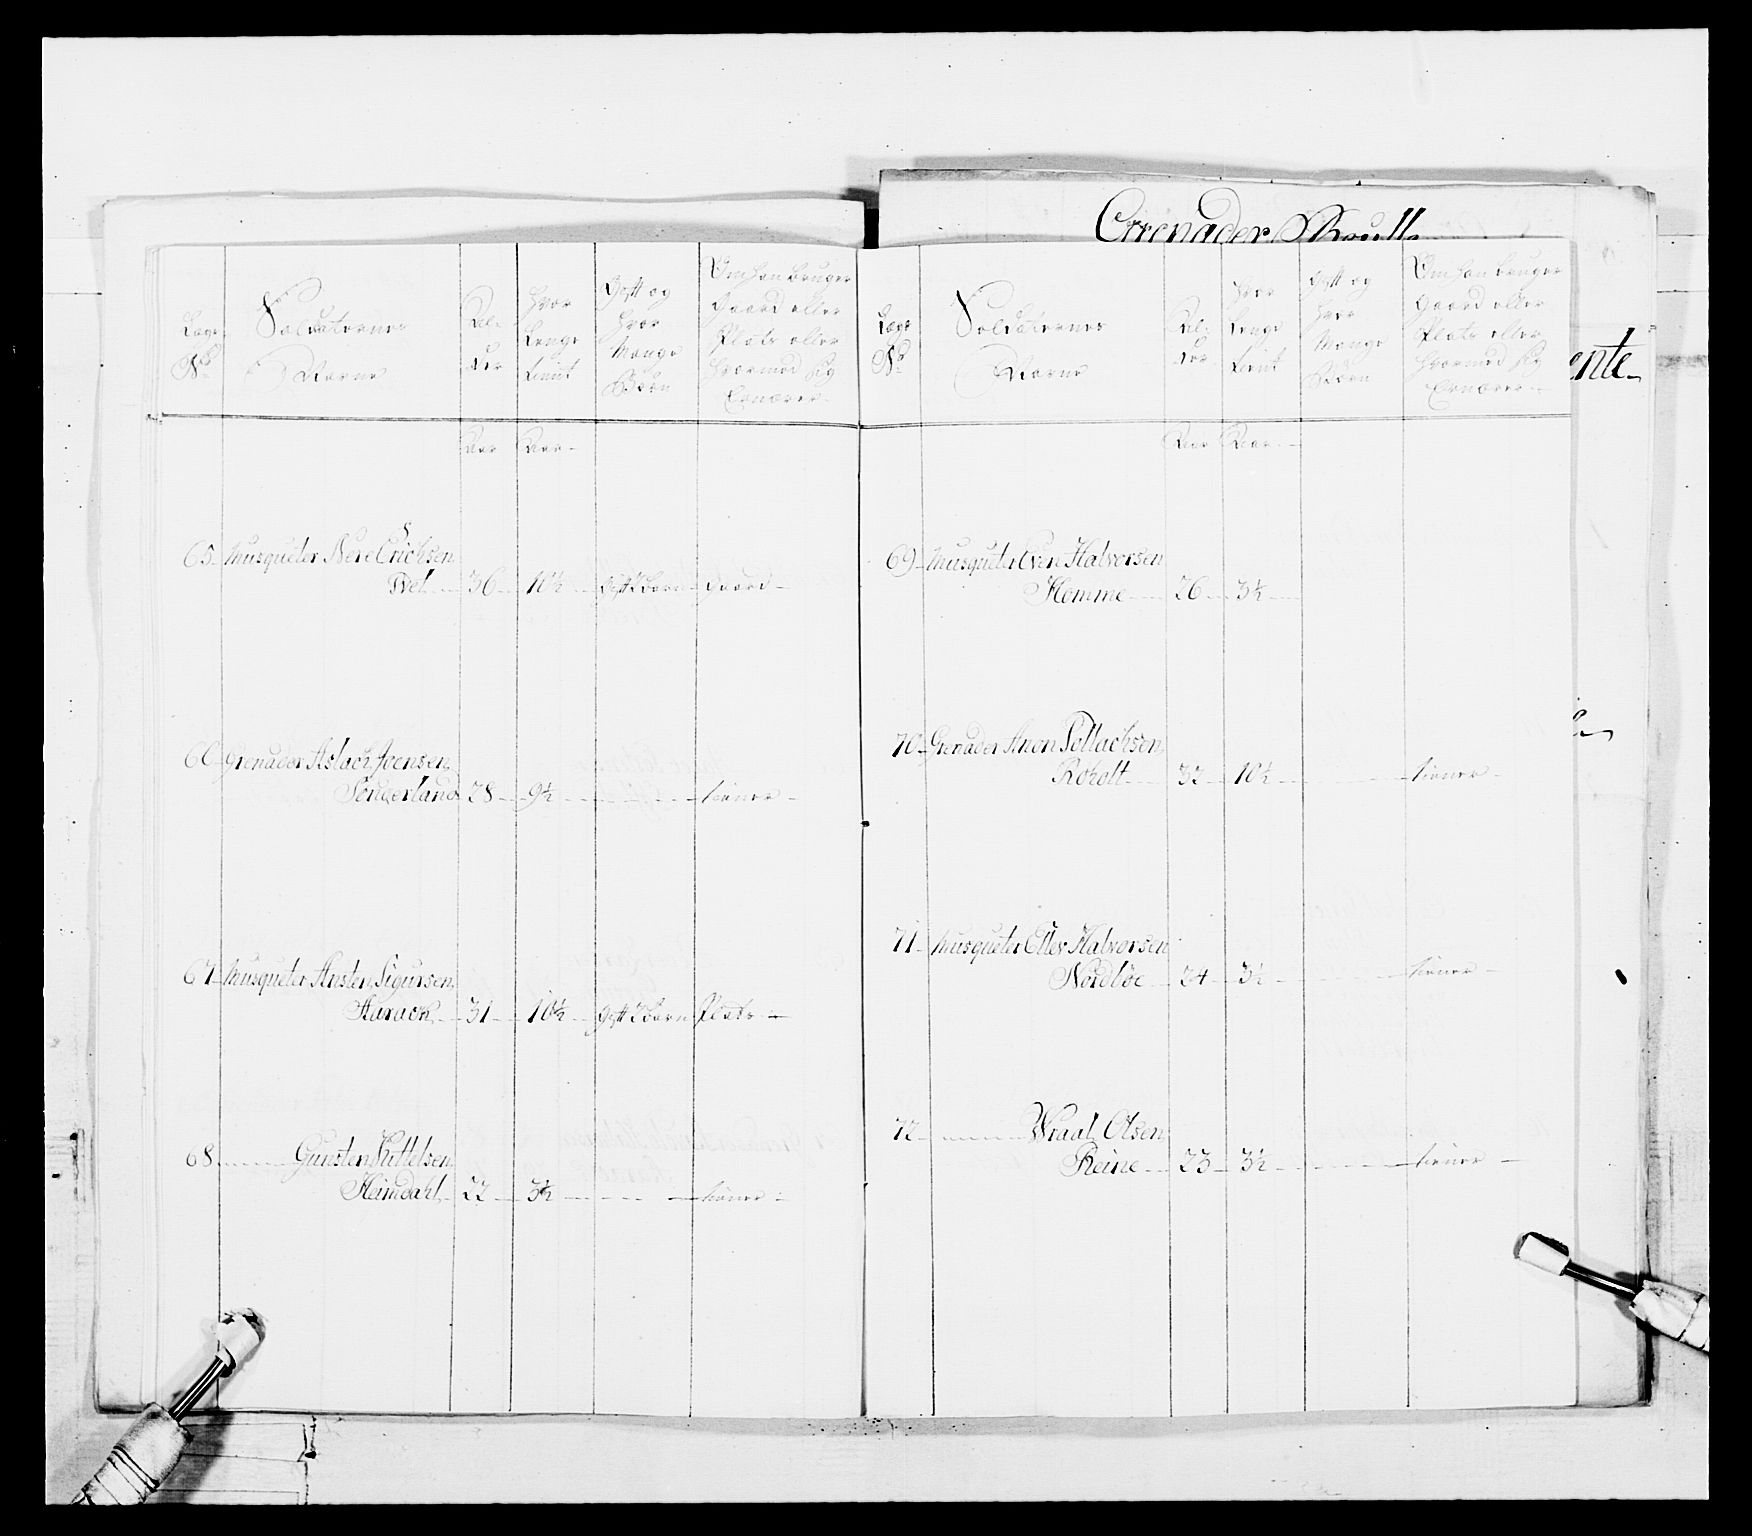 Grenader Roull
Lægs
No
Soldaternes
Navne
Al-
der
Hvor
Længe
tient
Gift og
Hvor
Mange
Børn
Om han bruger
Gaard eller
Plads eller
Hvormed sig
Ernærer
Aar
Aar
65 Musqueter Nere Erichsen
Tvet 36 10½ Gift 2 Børn Gaard
66 Grenader Aslach Joensen
Sønderland 28 9½ tiener
67 Musqueter Ansten Sigursen
Aarack 31 10½ Gift 2 Børn Plads
68 Gunsten Kittelsen
Heimdahl 22 3½ tiener
Lægs
No
Soldaternes
Navne
Al-
der
Hvor
Længe
tient
Gift og
Hvor
Mange
Børn
Om han bruger
Gaard eller
Plads eller
Hvormed sig
Ernærer
Aar
Aar
69 Musqueter Even Halvorsen
Homme 26 3½
70 Grenader Anon Sollachsen
Roholt 32 10½ tiener
71 Musqueter Ellev Halvorsen
Nordbøe 24 3½ tiener
72 Wraal Olsen
Reine 23 3½ tiener